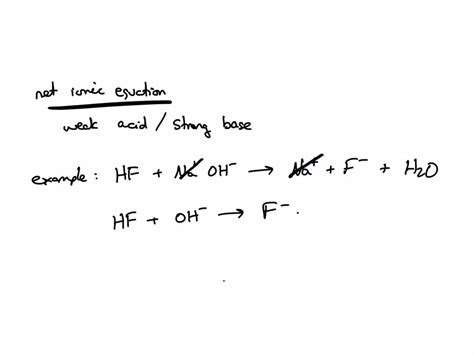 net ionic equation
weak acid / strong base
example : HF + Na⁺ OH⁻ → Na⁺ + F⁻ + H₂O
HF + OH⁻ → F⁻.